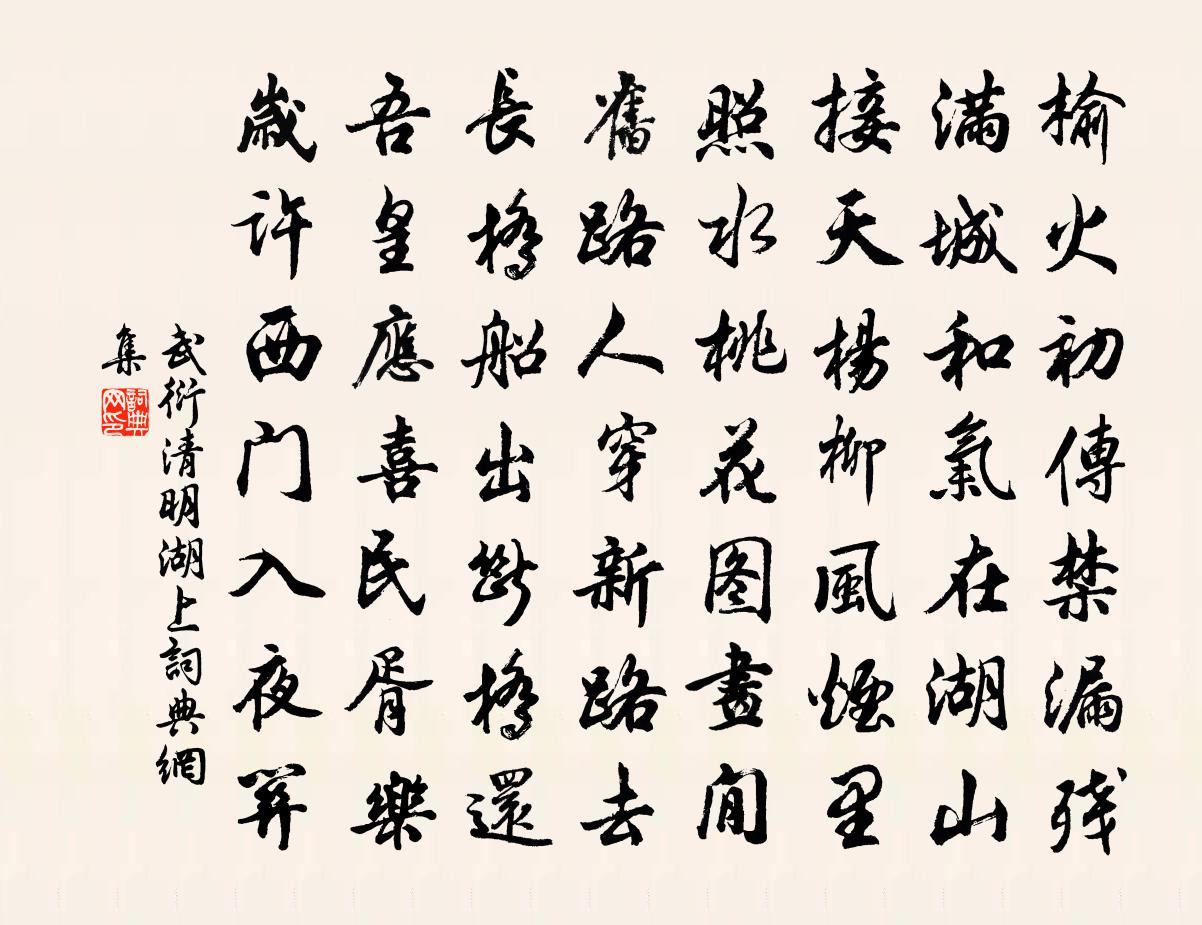 榆火初傳禁漏残
滿城和氣在湖山
接天楊柳風煙里
照水桃花图畫間
舊路人穿新路去
長橋船出斷橋還
吾皇應喜民胥樂
歲許西门入夜關
武衍清明湖上詞典網
集
詞典网印